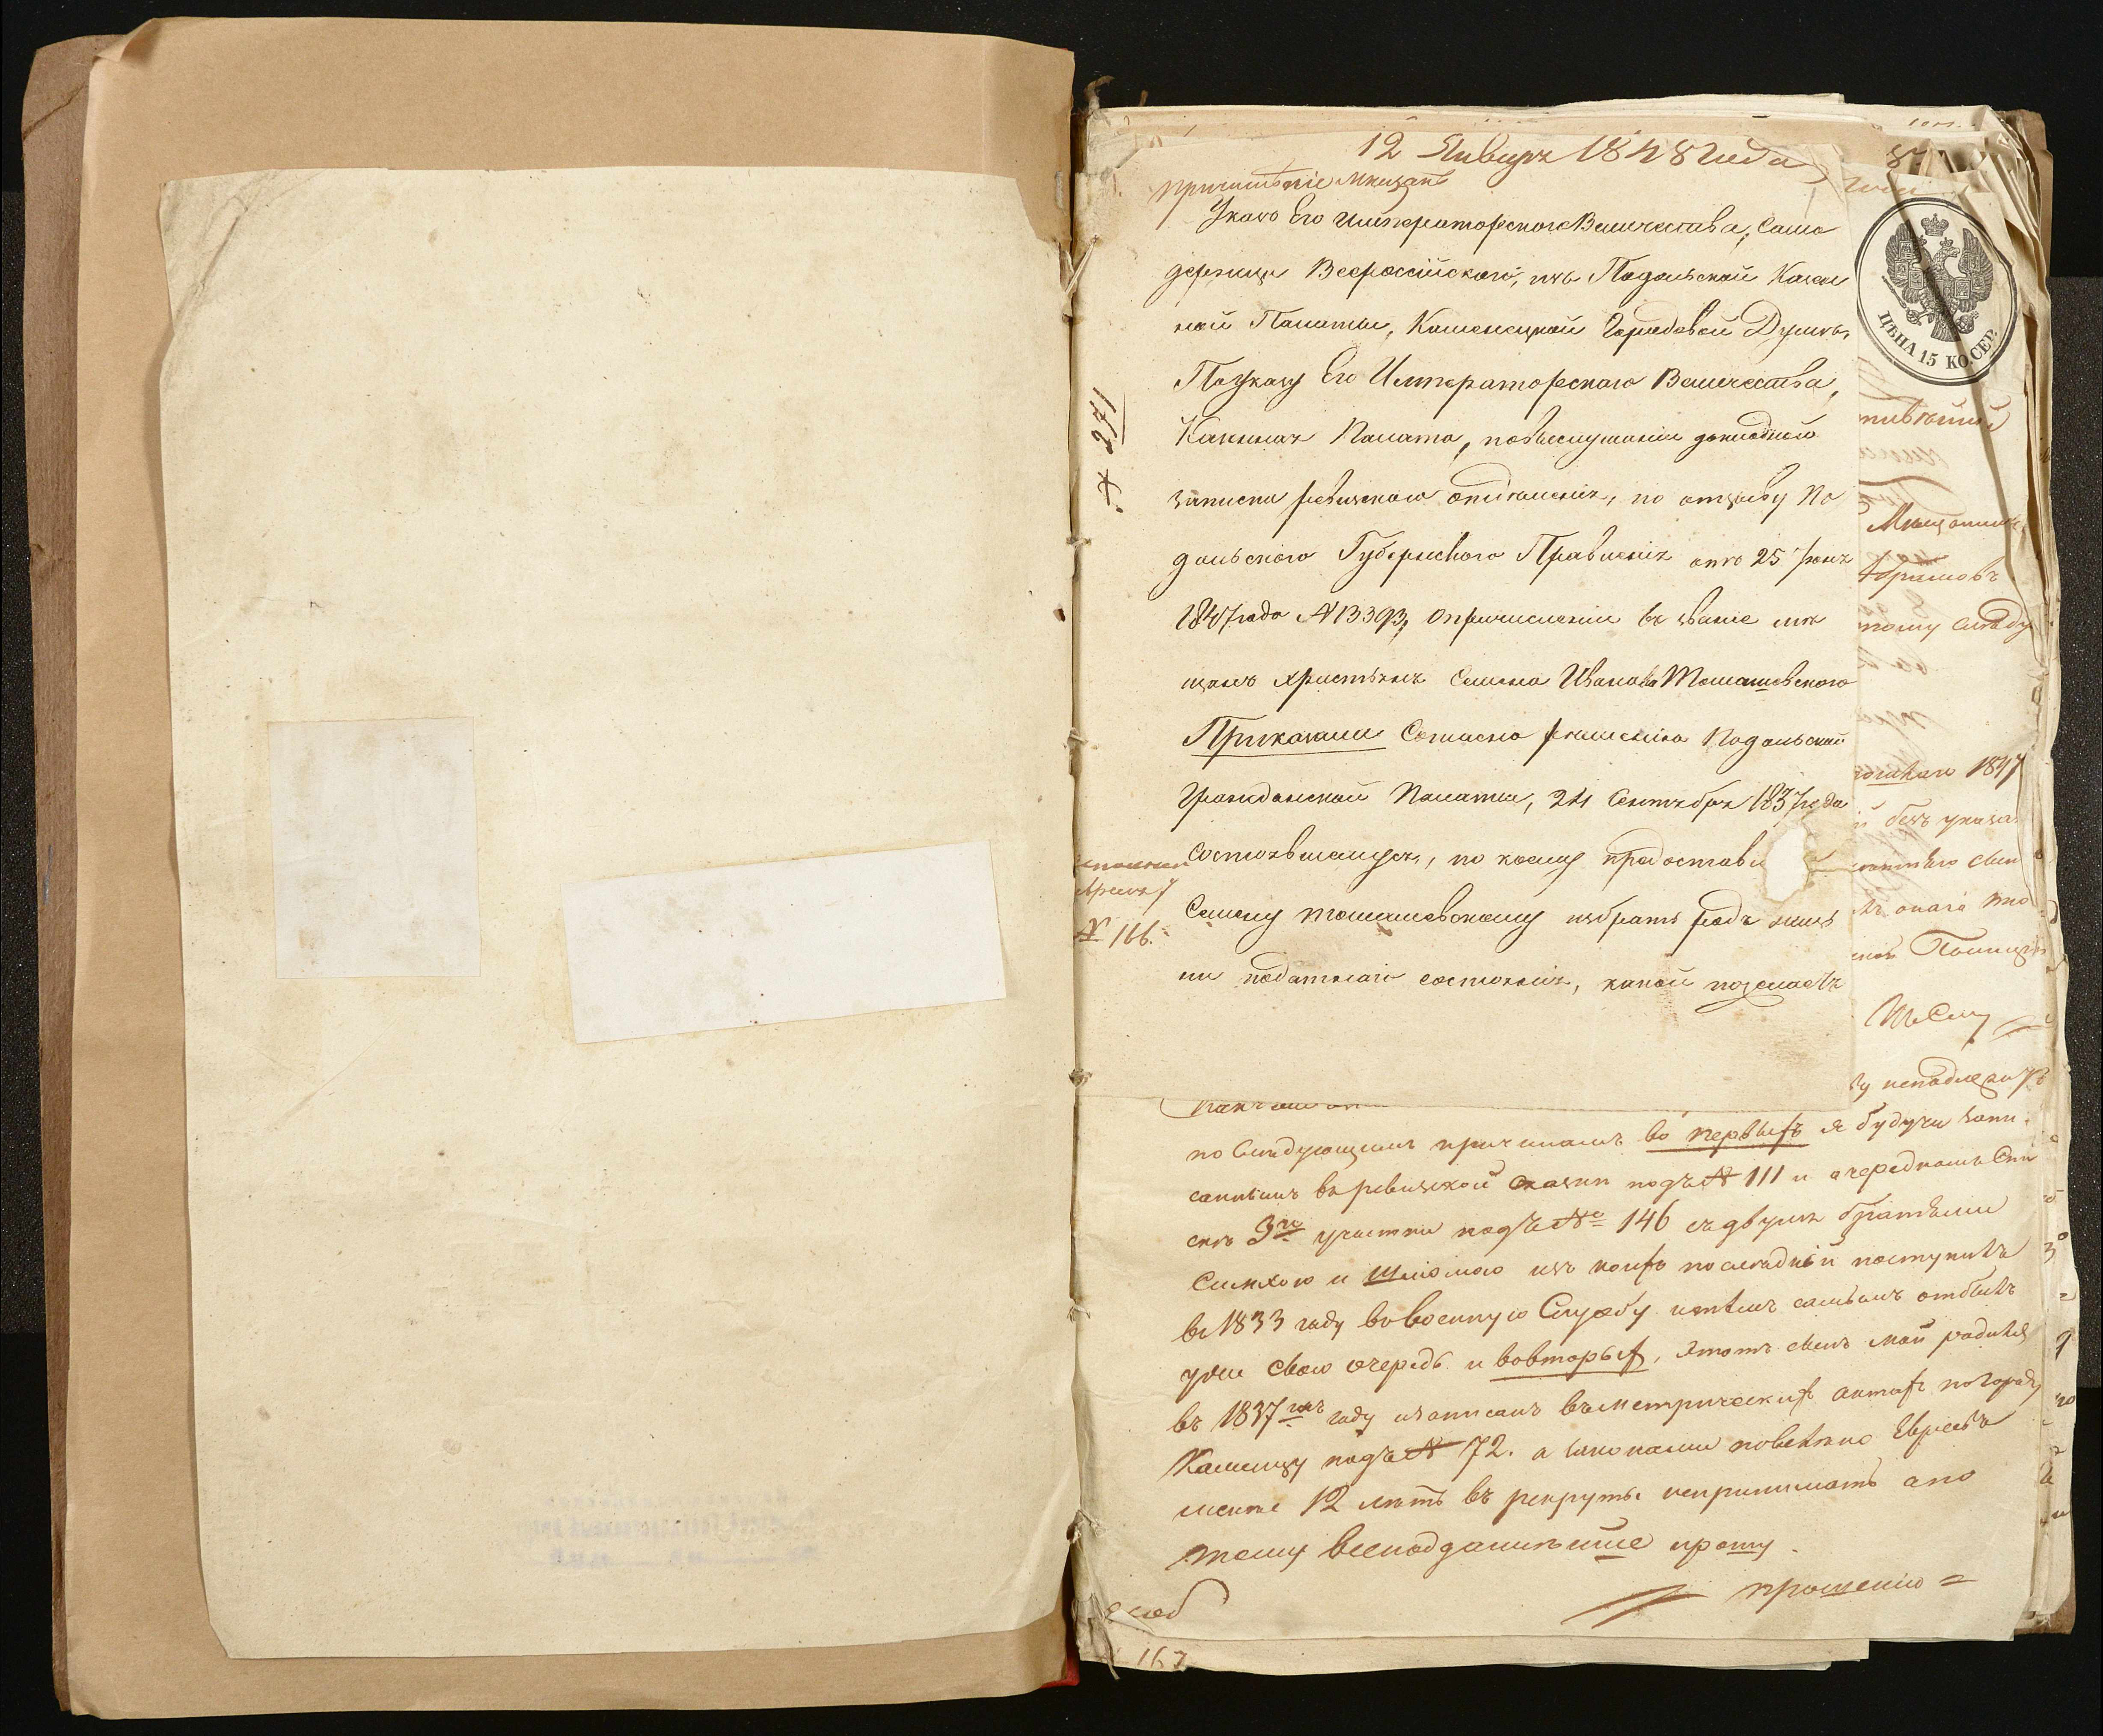 12 Января 1848 года
причисленіе мещанъ
Указъ Его Императорскаго Величества, Само
держца Всероссійскаго, изъ Подольской Казен
ной Палаты, Каменецкой Городовой Думѣ,
По указу Его Императорскаго Величества,
№ 271
Казенная Палата, по выслушаніи докладной
записки ревизскаго отдѣленія, по отзыву По
дольскаго Губернскаго Правленія отъ 25 Іюня
1847 года № 13393, о причисленіи въ званіе мѣ
щанъ христіянъ Семена Иванова Томашевскаго
Приказали Согласно рѣшенію Подольской
Гражданской Палаты, 24 Сентября 1837 года
состоявшемуся, по коему предостави
Семену Томашевскому избрать родъ жиз
ни податнаго состоянія, какой пожелаетъ
№ 166.
ЦѢНА 15 КО. СЕР.
Мѣщанина
тому слѣду
1847
без указа
оваго
по слѣдующимъ причинамъ во первыхъ я будучи запи
саннымъ въ ревизской сказки подъ № 111 и очередномъ Спи
скѣ 3го участка подъ № 146 съ двумя братьями
Симхою и Шліомою изъ коихъ послѣдній поступилъ
въ 1833 году въ военную Службу и тѣмъ самымъ отбылъ
уже свою очередь и вовторыхъ, этотъ сынъ мой родился
въ 1837мъ году и записанъ въ метрическихъ актахъ по городу
Каменцу подъ № 72. а законами повелѣно Евреевъ
менѣе 12 лѣтъ въ рекруты непринимать а по
тому всеподданнѣйше прошу.
прошенію =
167